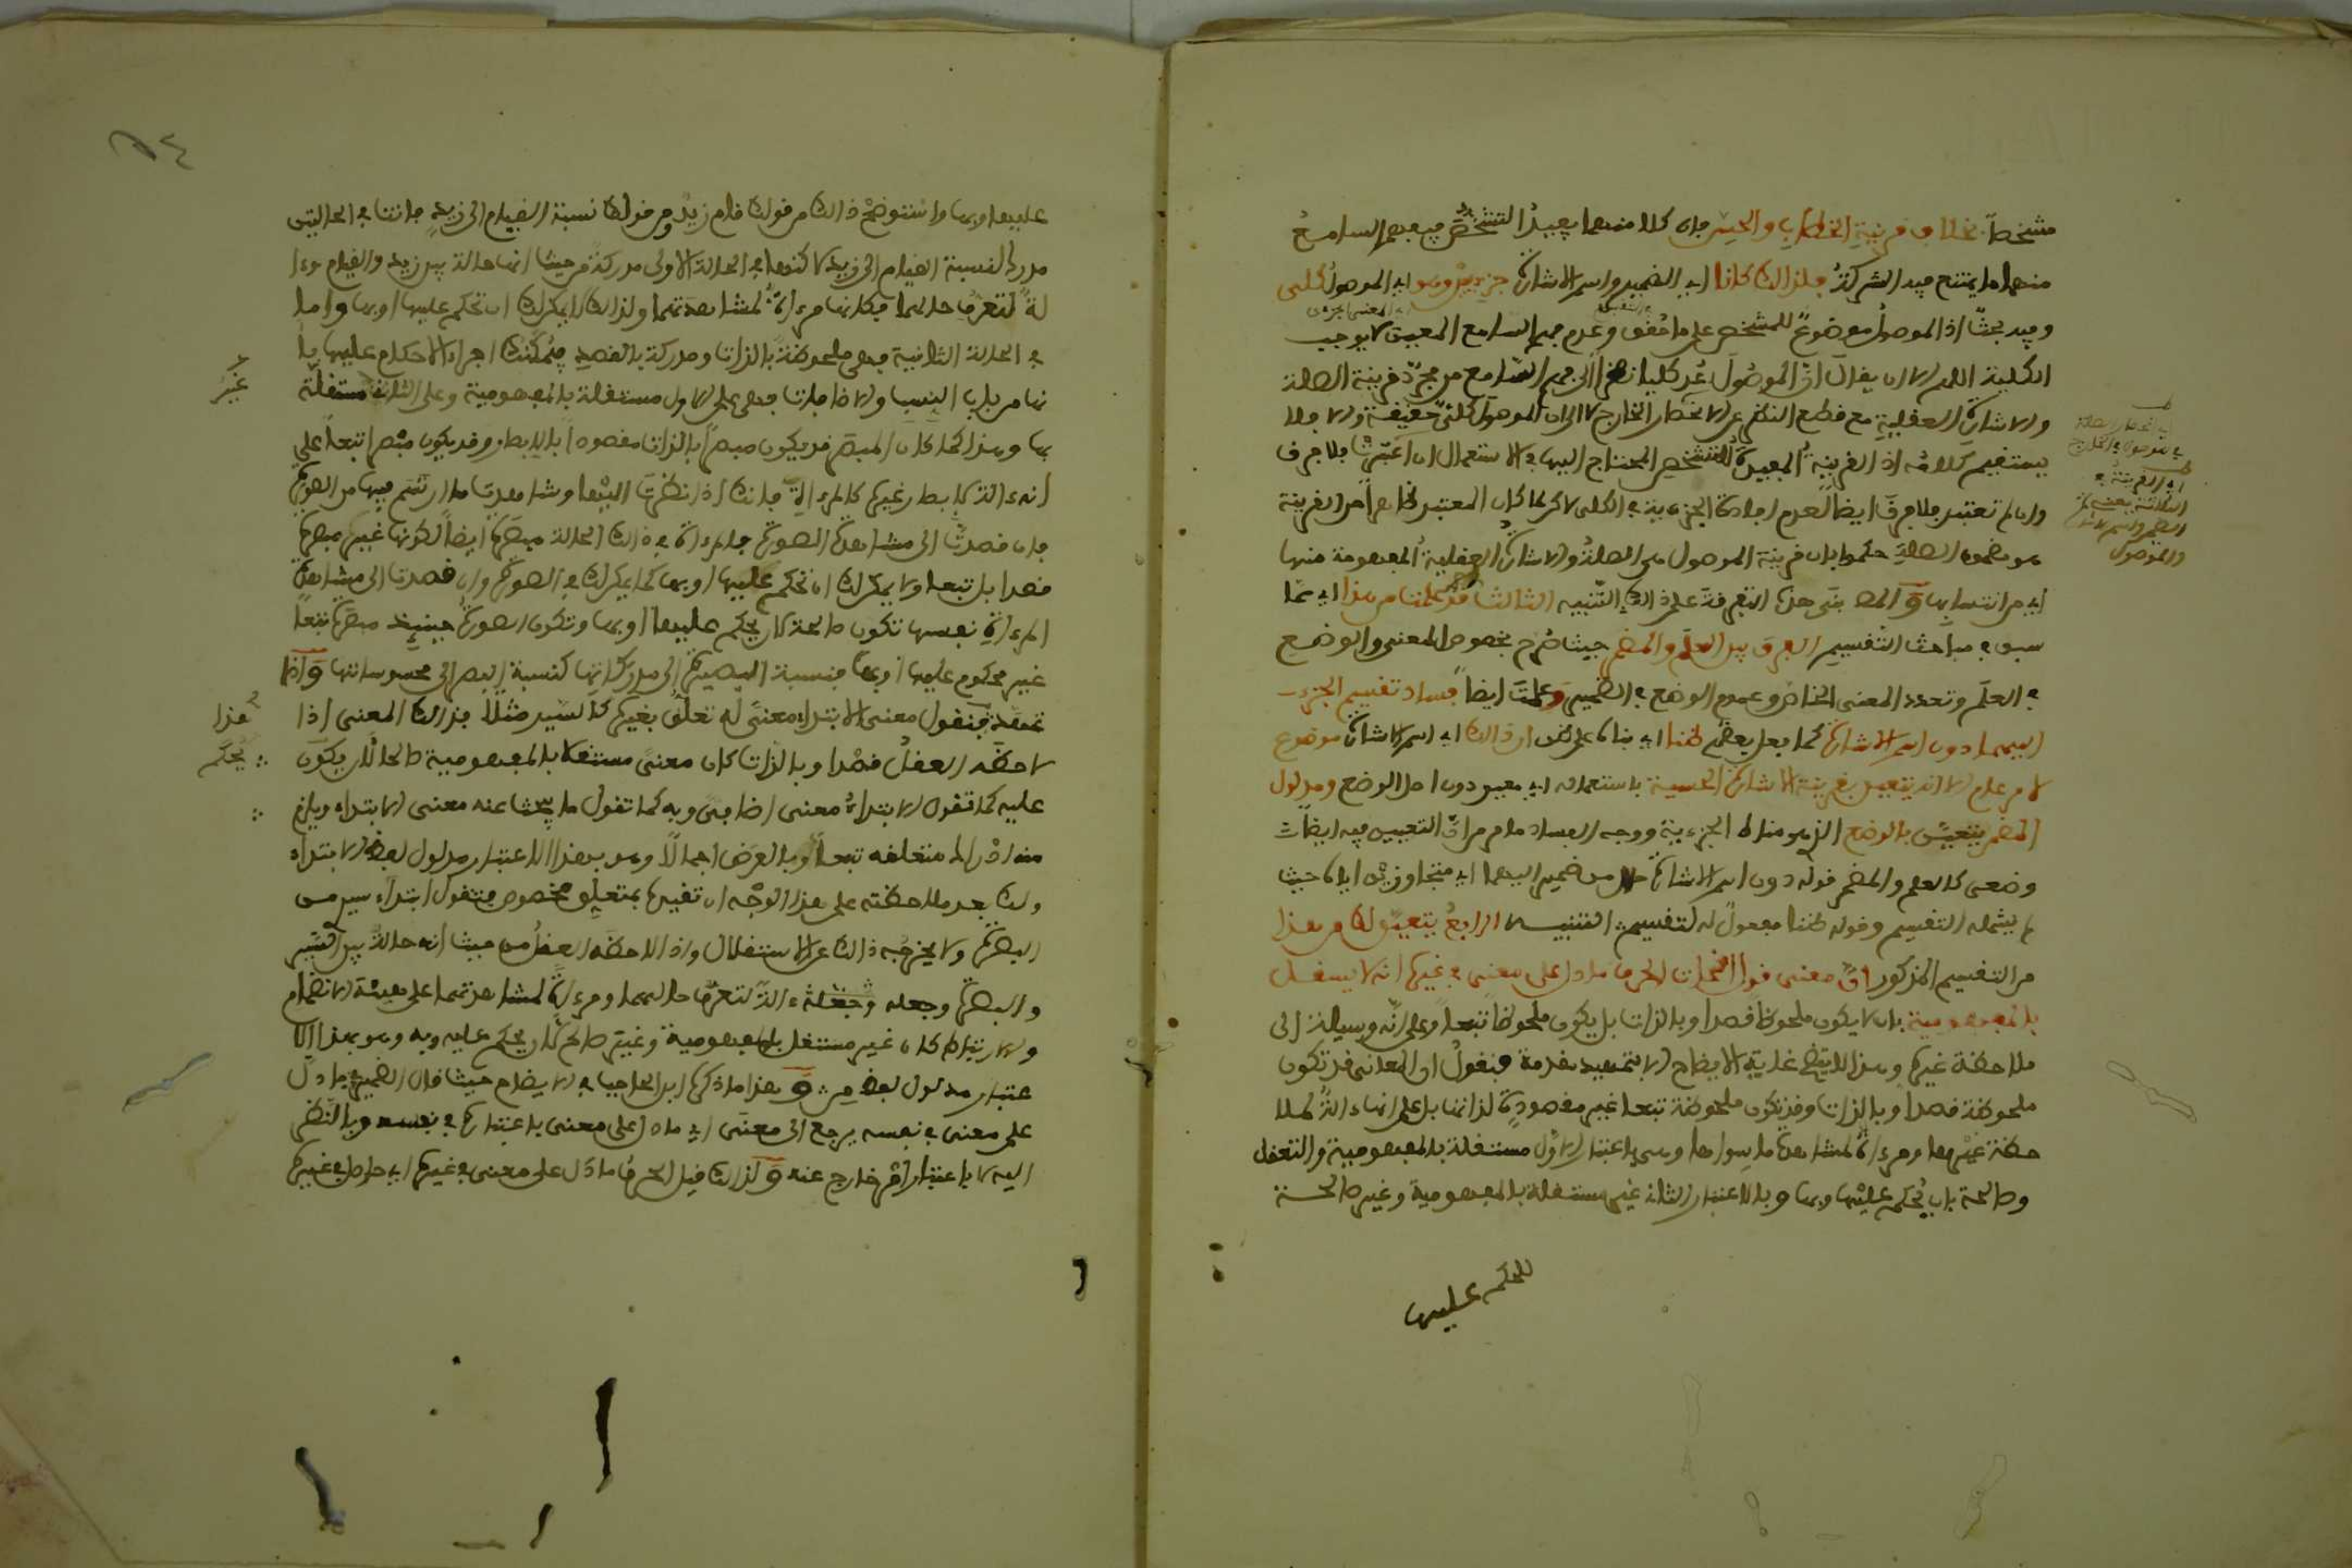 مشخصا بخلاف قرينة الخطاب والحس فإن كلا منهما يفيد التشخص فيفهم السامع
منهما ما يمتنع فيه الشركة فلذلك كانا اي الضمير واسم الاشارة جزءيين وهو اي الموصول كلى
وفيه بحث اذ الموصول موضوع للمشخص على ما حقق وعدم فهم السامع المعين لا يوجب
الكلية اللهم الا ان يقال ان الموصول عد كليا نظرا الى فهم السامع من مجرد قرينة الصلة
والاشارة العقلية مع قطع النظر عن الانحصار الخارج لا ان الموصول كلي حقيقة والا فلا
يستقيم كلامه اذ القرينة المفيدة للتشخص المحتاج اليها في الاستعمال ان اعتبرت فلا فرق
وان لم تعتبر فلا فرق ايضا لعدم افادة الجزءية في الكلى لاكن لما كان المعتبر ظاهرا من القرينة
هو مضمون الصلة حكموا بان قرينة الموصول هى الصلة والاشارة العقلية المفهومة منها
اي من انتسابها و المص بنى هذه التفرقة على ذلك التنبيه الثالث قد علمت من هذا اي مما
سبق في مباحث التقسيم الفرق بين العلم والمضمر حيث صرح بخصوص المعنى والوضع
في العلم وتعدد المعنى الخاص وعموم الوضع في الضمير وعلمت ايضا فساد تقسيم الجزءي
اليهما دون اسم الاشارة كما فعل بعضهم ظنا اي بناء على ظن ان ذلك اي اسم الاشارة موضوع
لامر عام الا انه يتعين بقرينة الاشارة الحسية باستعماله اي معين دون اصل الوضع ومدلول
المضمر يتعين بالوضع الذي هو مناط الجزءية ووجه الفساد ما مر من ان التعيين فيه ايضا
وضعى كالعلم والمضمر قوله دون اسم الاشارة حال من ضمير اليهما اي متجاوزين اياه حيث
لم يشمله التقسيم وقوله ظنا مفعول له لتقسيم التنبيه الرابع يتبين لك من هذا
من التقسيم المذكور ان معنى قول النحات الحرف ما دل على معنى في غيره انه لا يستقل
بالمفهومية بان لا يكون ملحوظا قصدا وبالذات بل يكون ملحوظا تبعا وعلى انه وسيلة الى
ملاحظة غيره وهذا لا يتضح غاية الايضاح الا بتمهيد مقدمة فنقول ان المعانى قد تكون
ملحوظة قصدا وبالذات وقد تكون ملحوظة تبعا غير مقصودة لذاتها بل على انها ءالة لملا
حظة غيرها ومرءاة لمشاهدة ما سواها وهى باعتبار الاول مستقلة بالمفهومية والتعقل
وصالحة بان يحكم عليها وبها وبالاعتبار الثاني غير مستقلة بالمفهومية وغير صالحة
للحكم عليها
اي انحصار الصلة
في الموصول في الخارج
اي القرينة في
الثلاثة بعني
المضمر واسم الاشارة
والموصول
عليها وبها واستوضح ذالك من قولك قام زيد ومن قولك نسبة القيام الى زيد فانت في الحالتين
مدرك لنسبة القيام الى زيد لاكنها في الحالة الاولى مدركة من حيث انها حالة بين زيد والقيام وءا
لة لتعرف حالهما فكانها مرءاة لمشاهدتهما ولذالك لا يمكنك ان تحكم عليها وبها واما
في الحالة الثانية فهى ملحوظة بالذات ومدركة بالقصد فيمكنك اجراء الاحكام عليها با
نها من باب النسب والاضافات فهى على الاول مستقلة بالمفهومية وعلى الثاني مستقلة
بها وهذا كما كان المبصر قد يكون مبصرا بالذات مقصودا بالابصار وقد يكون مبصرا تبعا على
انه ءالة لابصار غيره كالمرءاة فانك اذا نظرت اليها وشاهدت ما ارتسم فيها من الصورة
فان قصدت الى مشاهدة الصورة فالمرءاة في ذالك الحالة مبصرة ايضا لكونها غير مبصرة
قصدا بل تبعا ولا يمكنك ان تحكم عليها وبها كما يمكنك في الصورة وان قصدت الى مشاهدة
المرءاة نفسها تكون صالحة لان يحكم عليها وبها وتكون الصورة حينيذ مبصرة تبعا
غير محكوم عليها وبها فنسبة البصيرة الى مدركاتها كنسبة البصر الى محسوساتها واذا
تمهد فنقول معنى الابتداء معنى له تعلق بغيره كالسير مثلا فذالك المعنى اذا
لاحظه العقل قصدا وبالذات كان معنى مستقلا بالمفهومية صالحا لان يكون
عليه كما تقول الابتداء معنى اضافي وبه كما تقول ما يبحث عنه معنى الابتداء ويلزم
منه ادراك متعلقه تبعا وبالعرض اجمالا وهو بهذا الاعتبار مدلول لفظ الابتداء
ولك بعد ملاحظته على هذا الوجه ان تقيده بمتعلق مخصوص فتقول ابتداء سير من
البصرة ولا يخرجه ذالك عن الاستقلال واذا لاحظه العقل من حيث انه حالة بين السير
والبصرة وجعله وجعلة ءالة لتعرف حالهما ومرءاة لمشاهدتهما على هيئة الانضمام
والارتباط كان غير مستقل بالمفهومية وغير صالح لان يحكم عليه وبه وهو بهذا الا
عتبار مدلول لفظ من و هذا ما ذكره ابن الحاجب في الايضاح حيث قال الضمير في ما دل
على معنى في نفسه يرجع الى معنى اي ما دل على معنى باعتباره في نفسه وبالنظر
اليه لا باعتبار امر خارج عنه و لذالك قيل الحرف ما دل على معنى في غيره اي حاصل في غيره
غير
هذا
يحكم